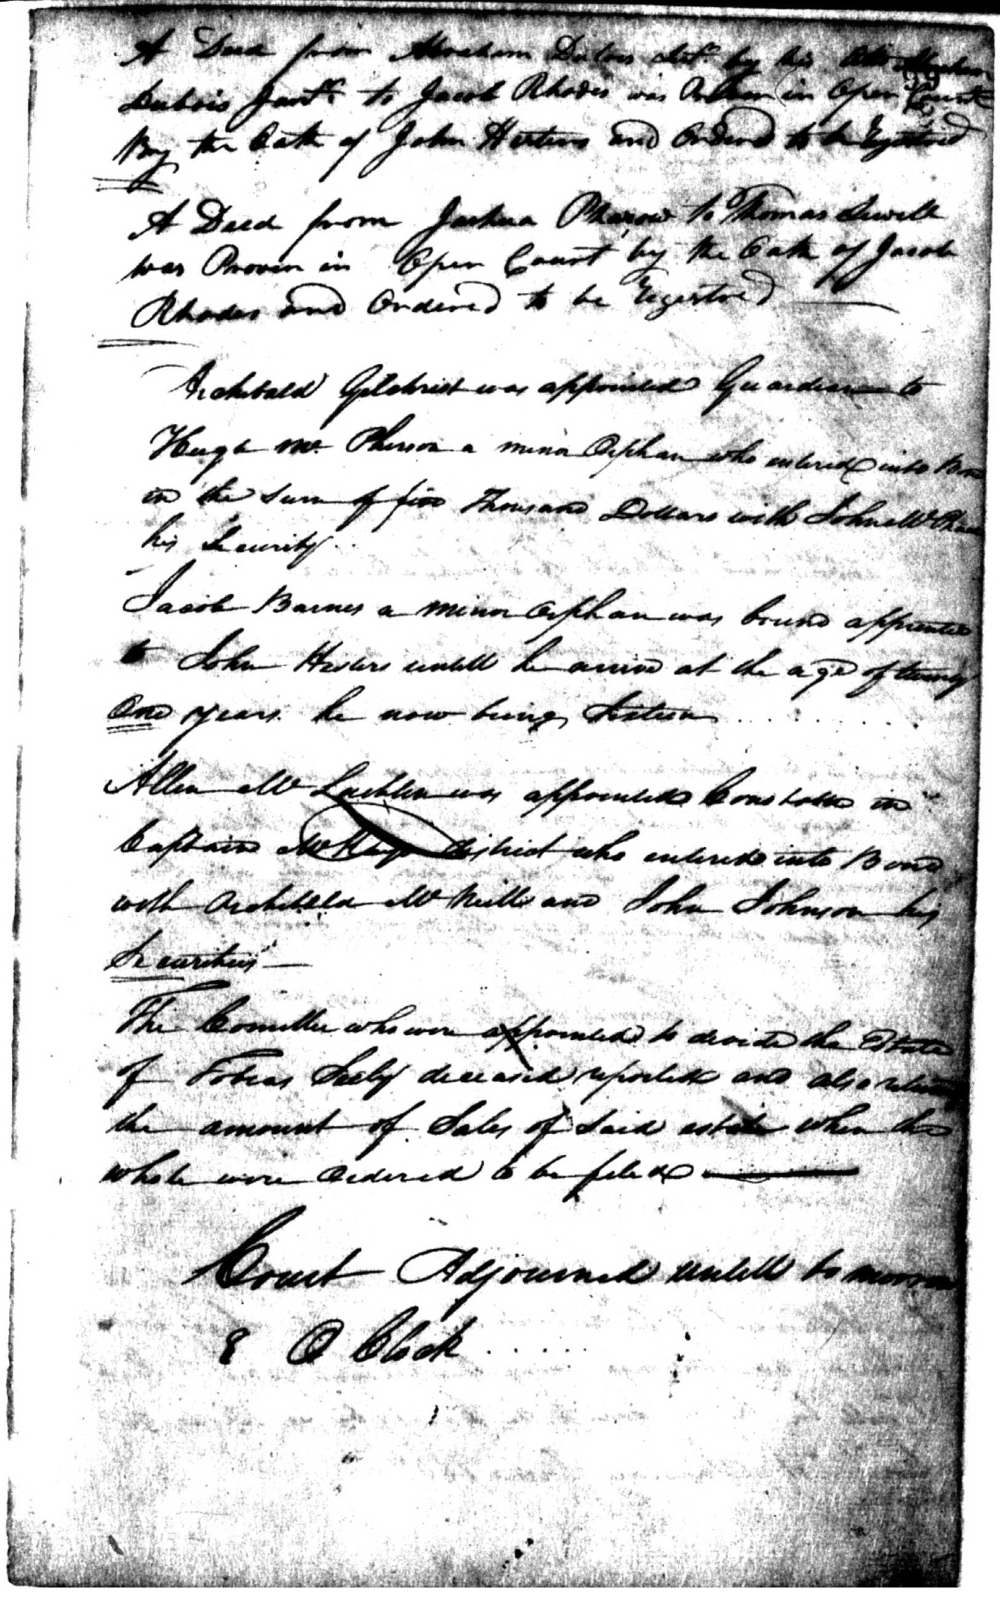 A Deed from Abraham Dubois Senr. by his Atto Abraham
Dubois Junr. to Jacob Rhodes was Proven in Open Court
By the Oath of John Hesters and Ordered to be Registred
A Deed from Joshua Pharow to Thomas Sewell
was Proven in Open Court by the Oath of Jacob
Rhodes and Ordered to be Registred
Archibald Gilchrist was appointed Guardian to
Hugh Mc. Pherson a minor Orphan who entered into Bond
in the Sum of five Thousand Dollars with John Mc
his Security
Jacob Barnes a minor Orphan was bound apprentice
to John Hesters untill he arive at the age of twenty
One years he now being Sixteen
Allen Mc Lachlen was appointed Constable in
Captains district who entered into Bond
with Archibald Mc Neill and John Johnson his
Securities
The Comittee who were appointed to devide the Estate
of Tobias Seely deceased reported and also returned
the amount of Sales of Said estate when the
whole were Ordered to be filed
Court Adjourned untill to morrow
8 O Clock